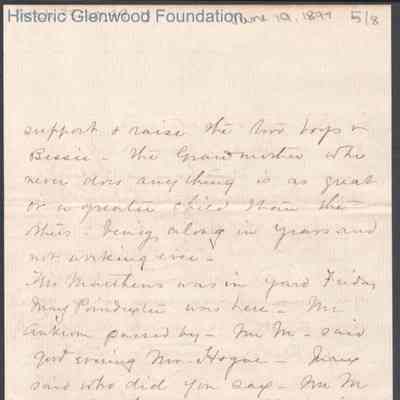 Historic Glenwood Foundation June 19, 1897 5/8
support & raise the two boys &
Bessie - The Grandmother who
never does anything is as great
or a greater child than the
others - being along in years and
not working ever -
Mr Matthews was in yard Friday
May Poindexter was here - Mr
passed by - Mr M - said
good evening Mr Hogue -
said who did you say - Mr M